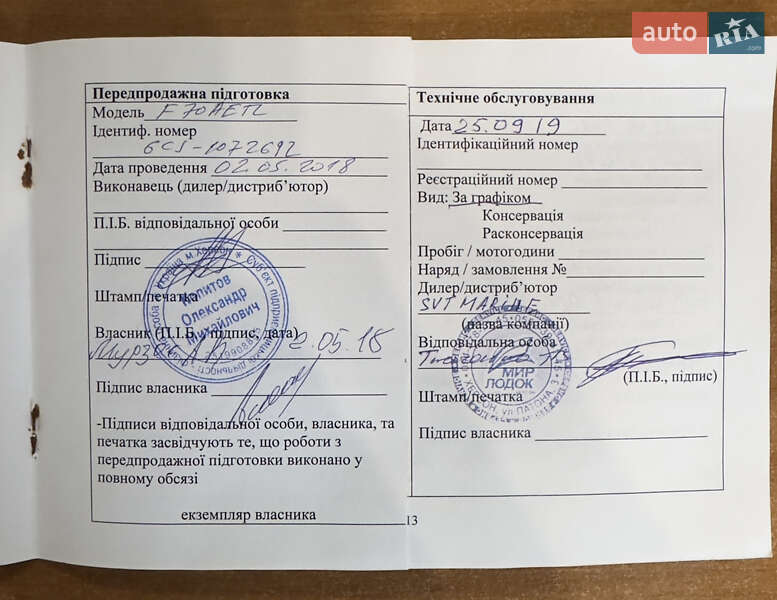 auto RIA .com
Передпродажна підготовка
Модель F70AETL
Ідентиф. номер
6CJ-1072692
Дата проведення 02.05.2018
Виконавець (дилер/дистриб’ютор)
П.І.Б. відповідальної особи
Підпис
Штамп/печатка
Копитов
Олександр
Михайлович
Власник (П.І.Б., підпис, дата)
2.05.18
Підпис власника
-Підписи відповідальної особи, власника, та
печатка засвідчують те, що роботи з
передпродажної підготовки виконано у
повному обсязі
екземпляр власника
Технічне обслуговування
Дата 25.09 19
Ідентифікаційний номер
Реєстраційний номер
Вид: За графіком
Консервація
Расконсервація
Пробіг / мотогодини
Наряд / замовлення №
Дилер/дистриб’ютор
SVT MARINE
(назва компанії)
Відповідальна особа
МИР
ЛОДОК
(П.І.Б., підпис)
Штамп/печатка
Підпис власника
13